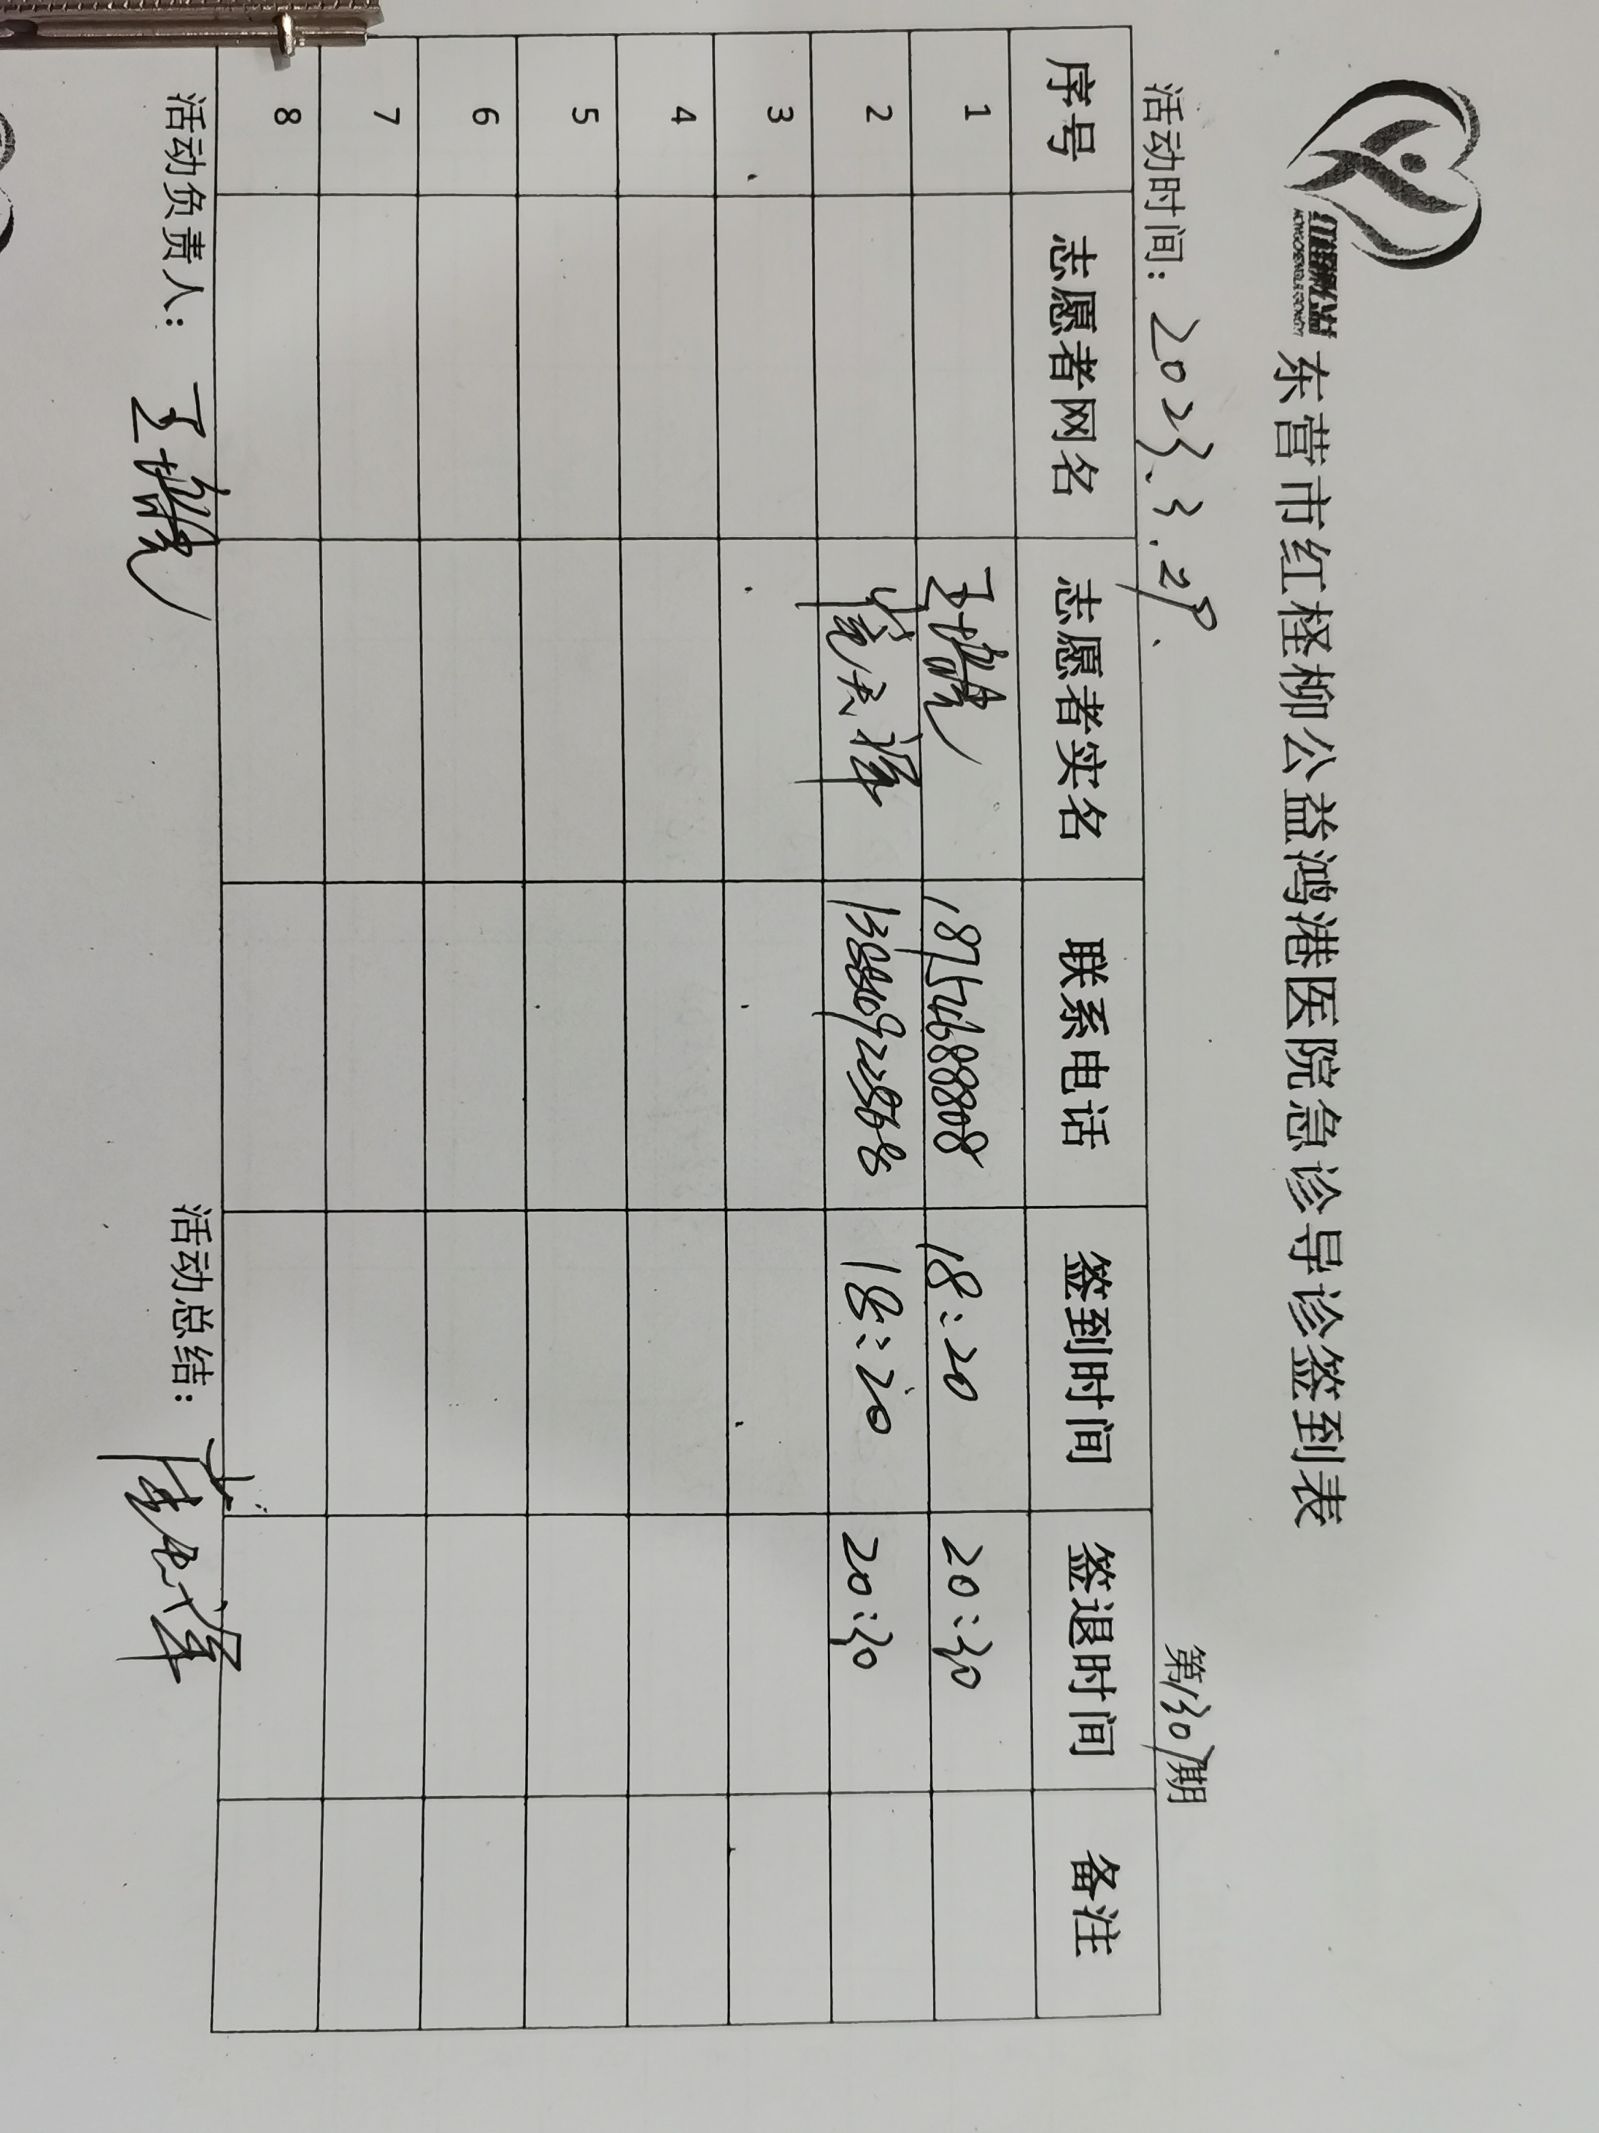 东营市红柽柳公益鸿港医院急诊导诊签到表
活动时间：2023.3.29. 第130期
序号 志愿者网名 志愿者实名 联系电话 签到时间 签退时间 备注
1 18754688808 18:20 20:30
2 18:20 20:30
3
4
5
6
7
8
活动负责人： 活动总结：